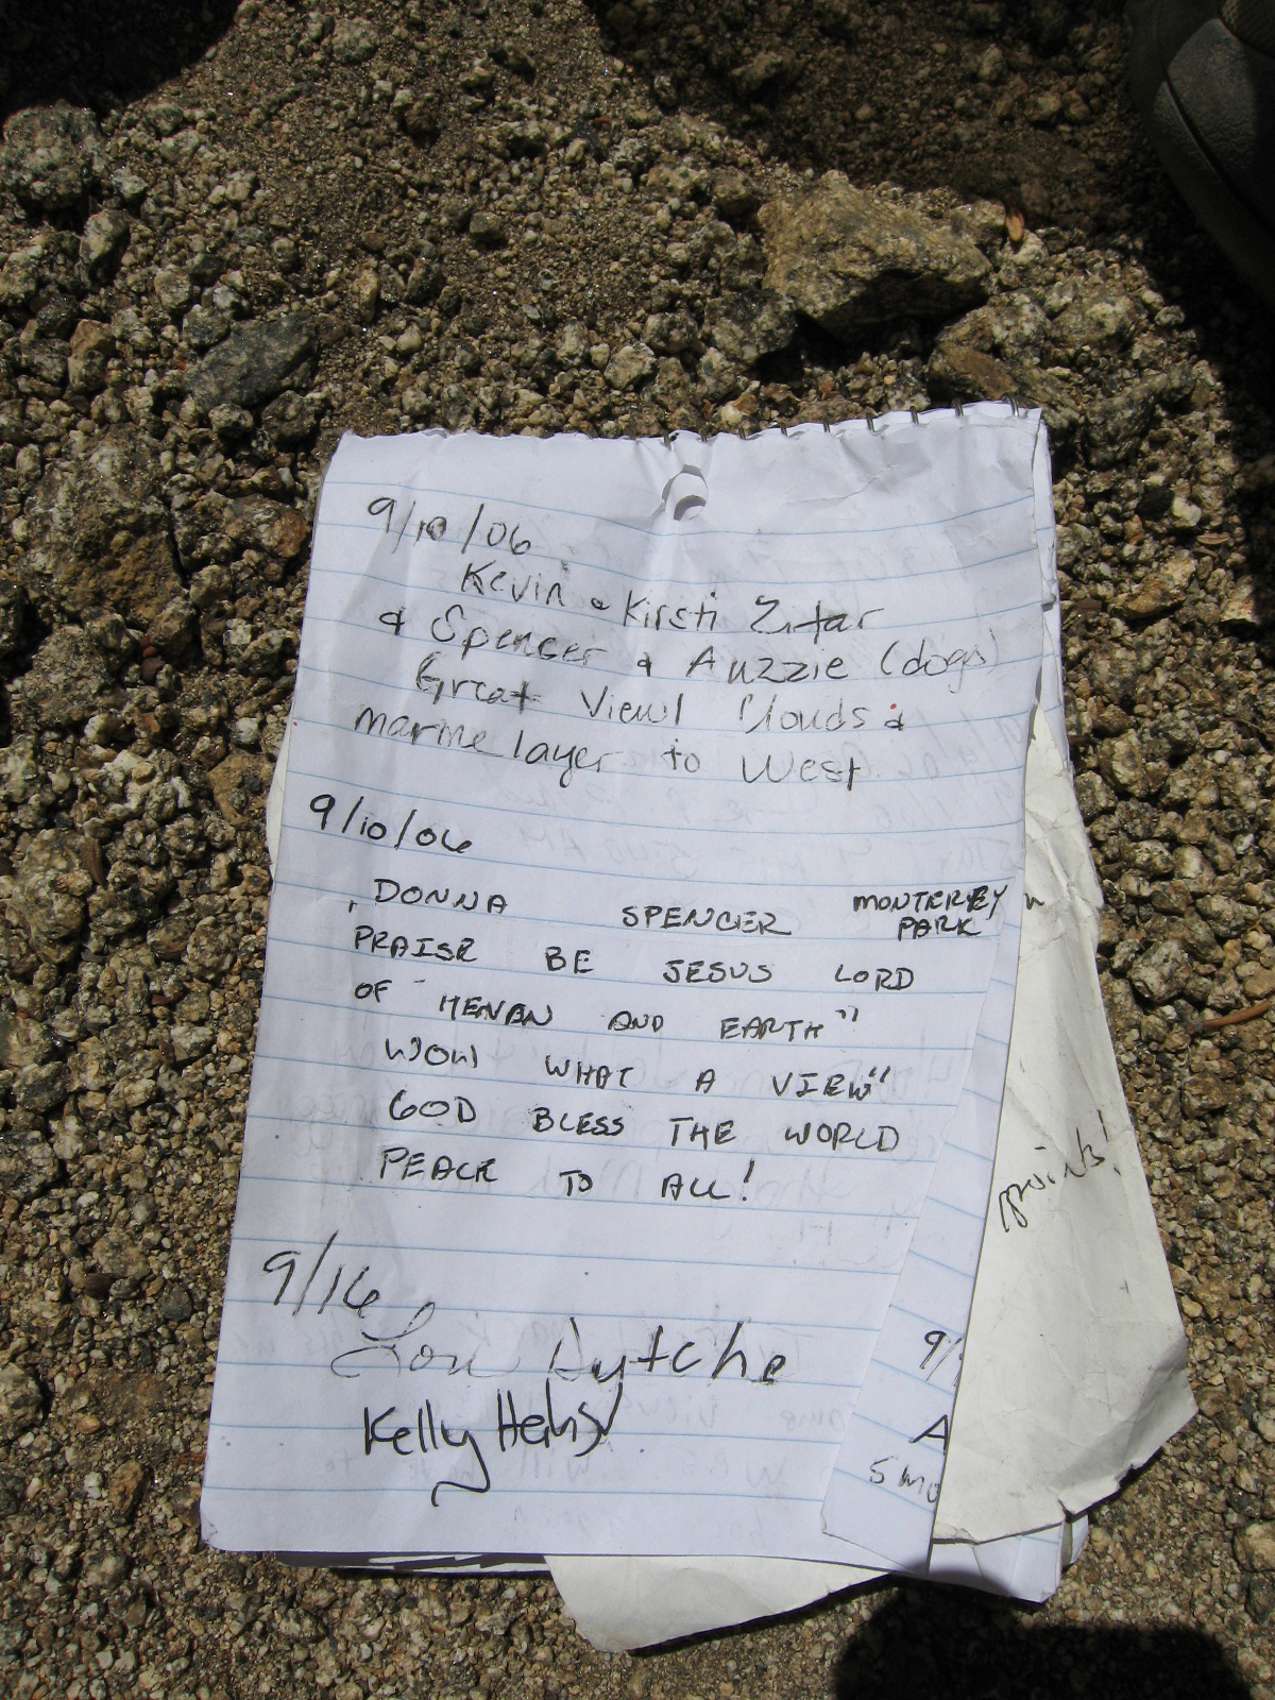 9/10/06
Kevin & Kirsti Zitar
& Spencer & Auzzie (dogs)
Great View! Clouds &
marine layer to West
9/10/06
DONNA SPENCER MONTEREY
PARK
PRAISE BE JESUS LORD
OF "HEVAN AND EARTH"
WOW WHAT A VIEW"
GOD BLESS THE WORLD
PEACE TO ALL!
points!
9/16
Lori Dytche
Kelly
9/
A
5 mo